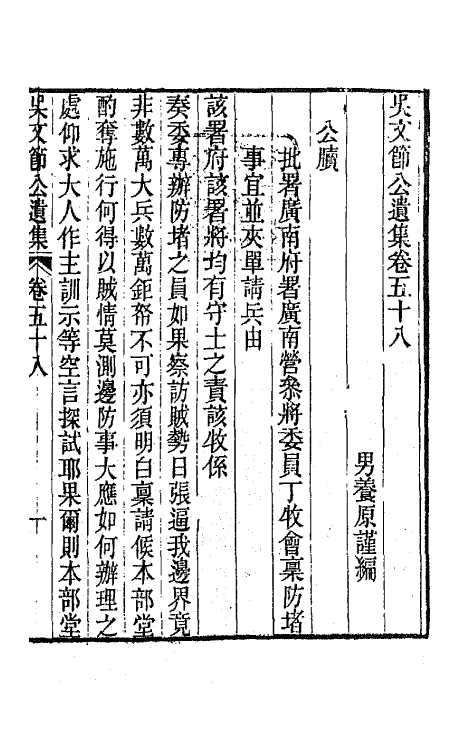 吳文節公遺集卷五十八
男養原謹編
公牘
批署廣南府署廣南營叅將委員丁牧會稟防堵
事宜並夾單請兵由
該署府該署將均有守土之責該牧係
奏委專辦防堵之員如果察訪賊勢日張逼我邊界竟
非數萬大兵數萬鉅帑不可亦須明白稟請候本部堂
酌奪施行何得以賊情莫測邊防事大應如何辦理之
處仰求大人作主訓示等空言探試耶果爾則本部堂
吳文節公遺集 卷五十八 一